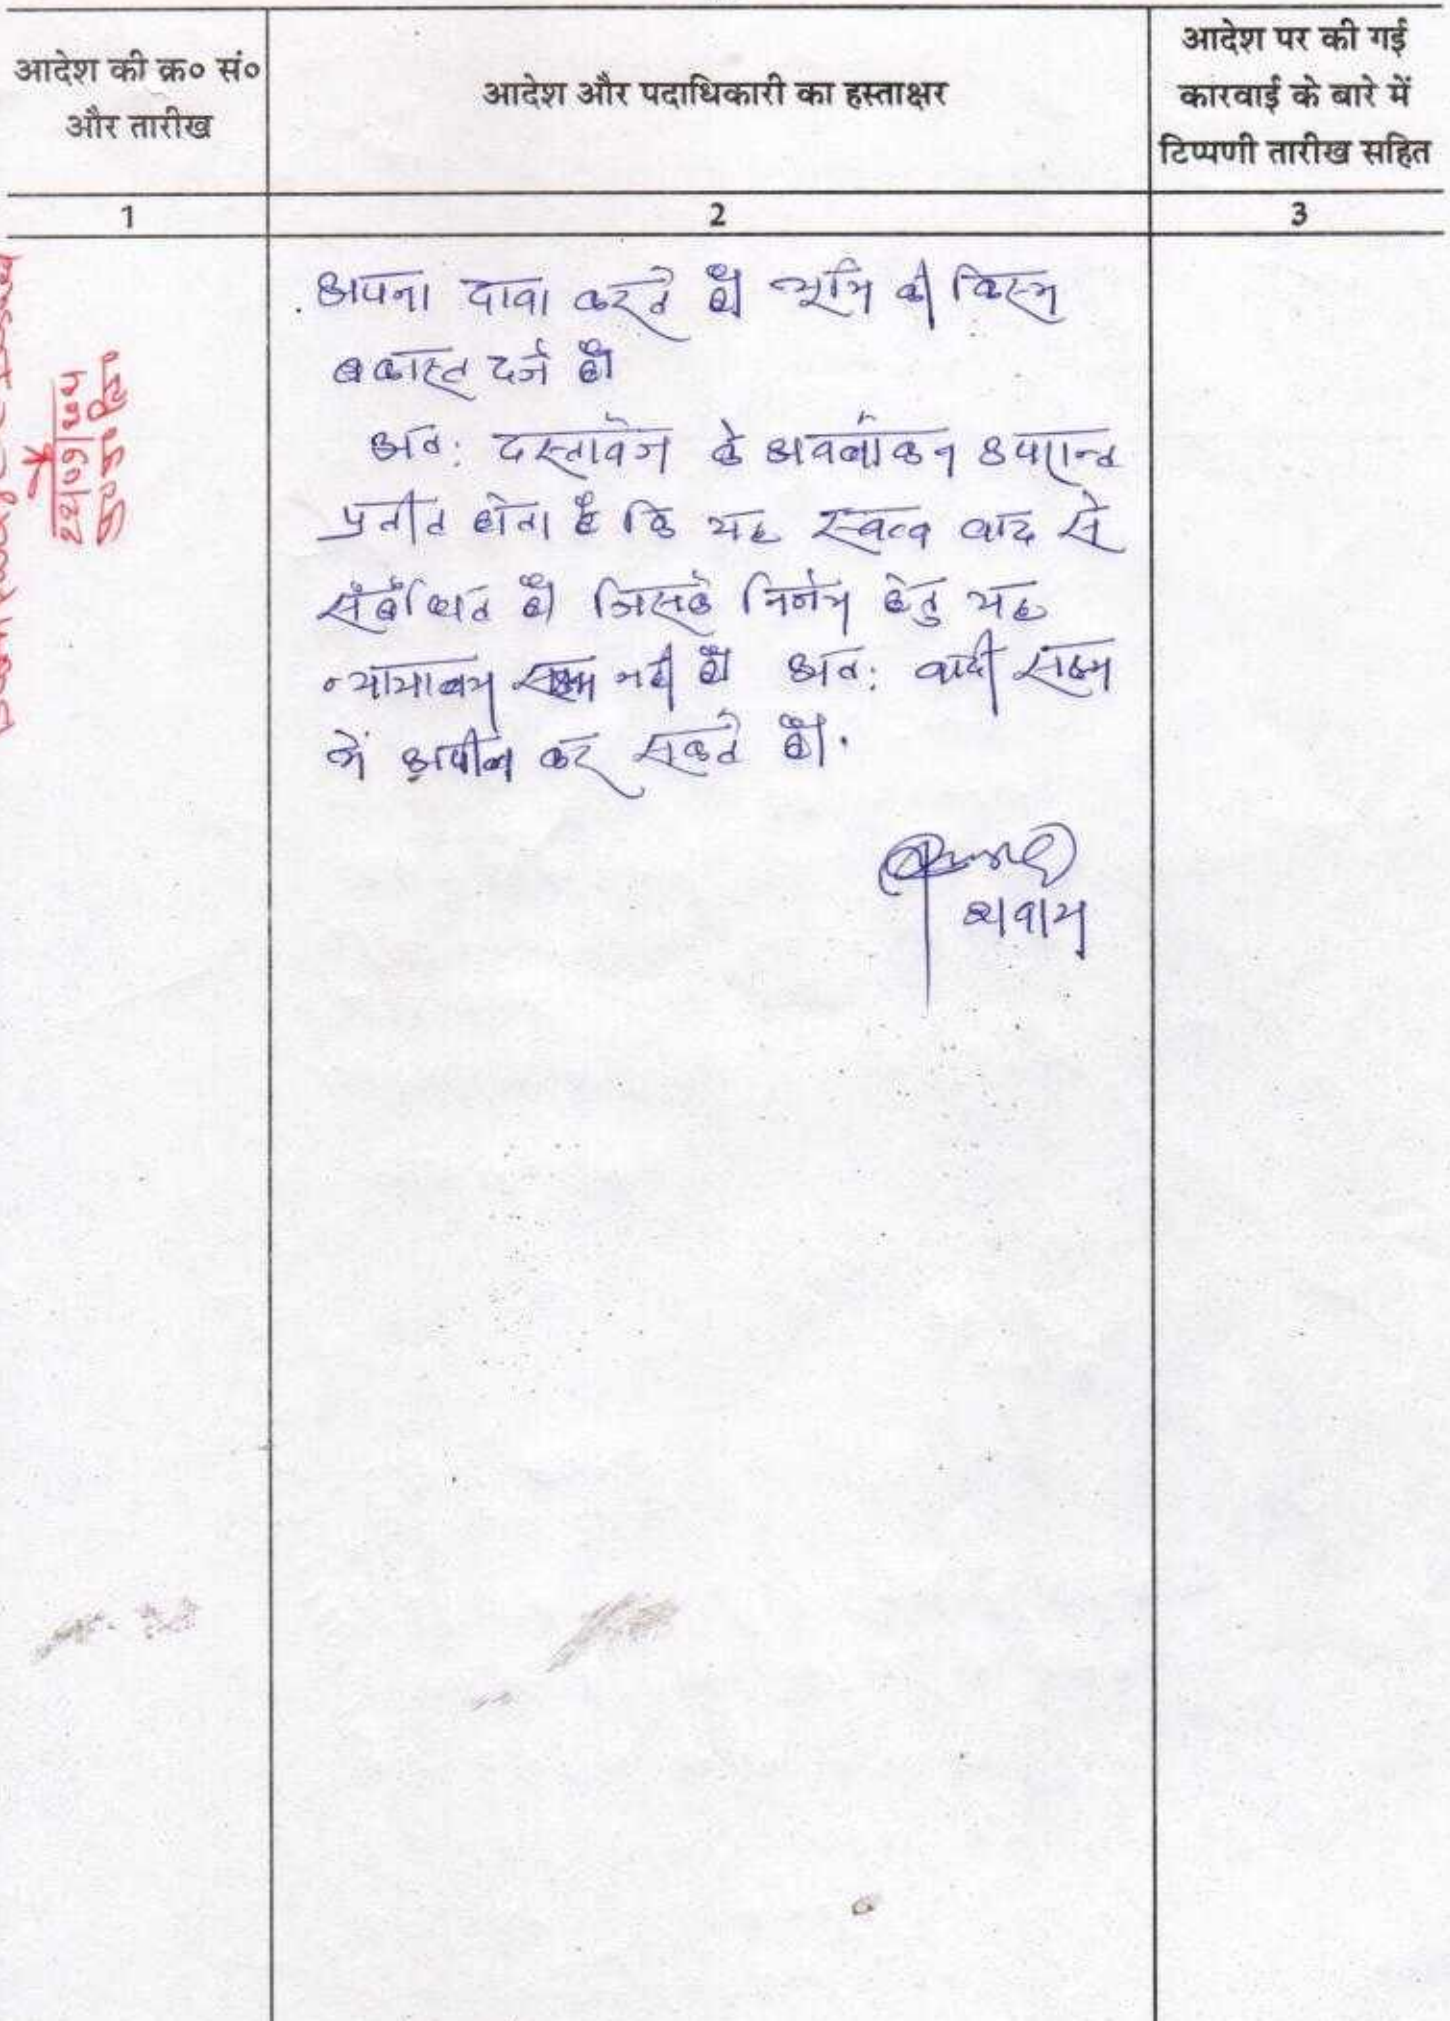 आदेश की क्र० सं०
और तारीख
आदेश और पदाधिकारी का हस्ताक्षर
आदेश पर की गई
कारवाई के बारे में
टिप्पणी तारीख सहित
1
2
3
अपना दावा करते है भूमि की किस्म
बकास्त दर्ज है
अत: दस्तावेज के अवलोकन उपरान्त
प्रतीत होता है कि यह स्वत्व वाद से
संबंधित है जिसके निर्नय हेतु यह
न्यायालय सक्षम नही है अत: वादी सक्षम
में अपील कर सकते है.